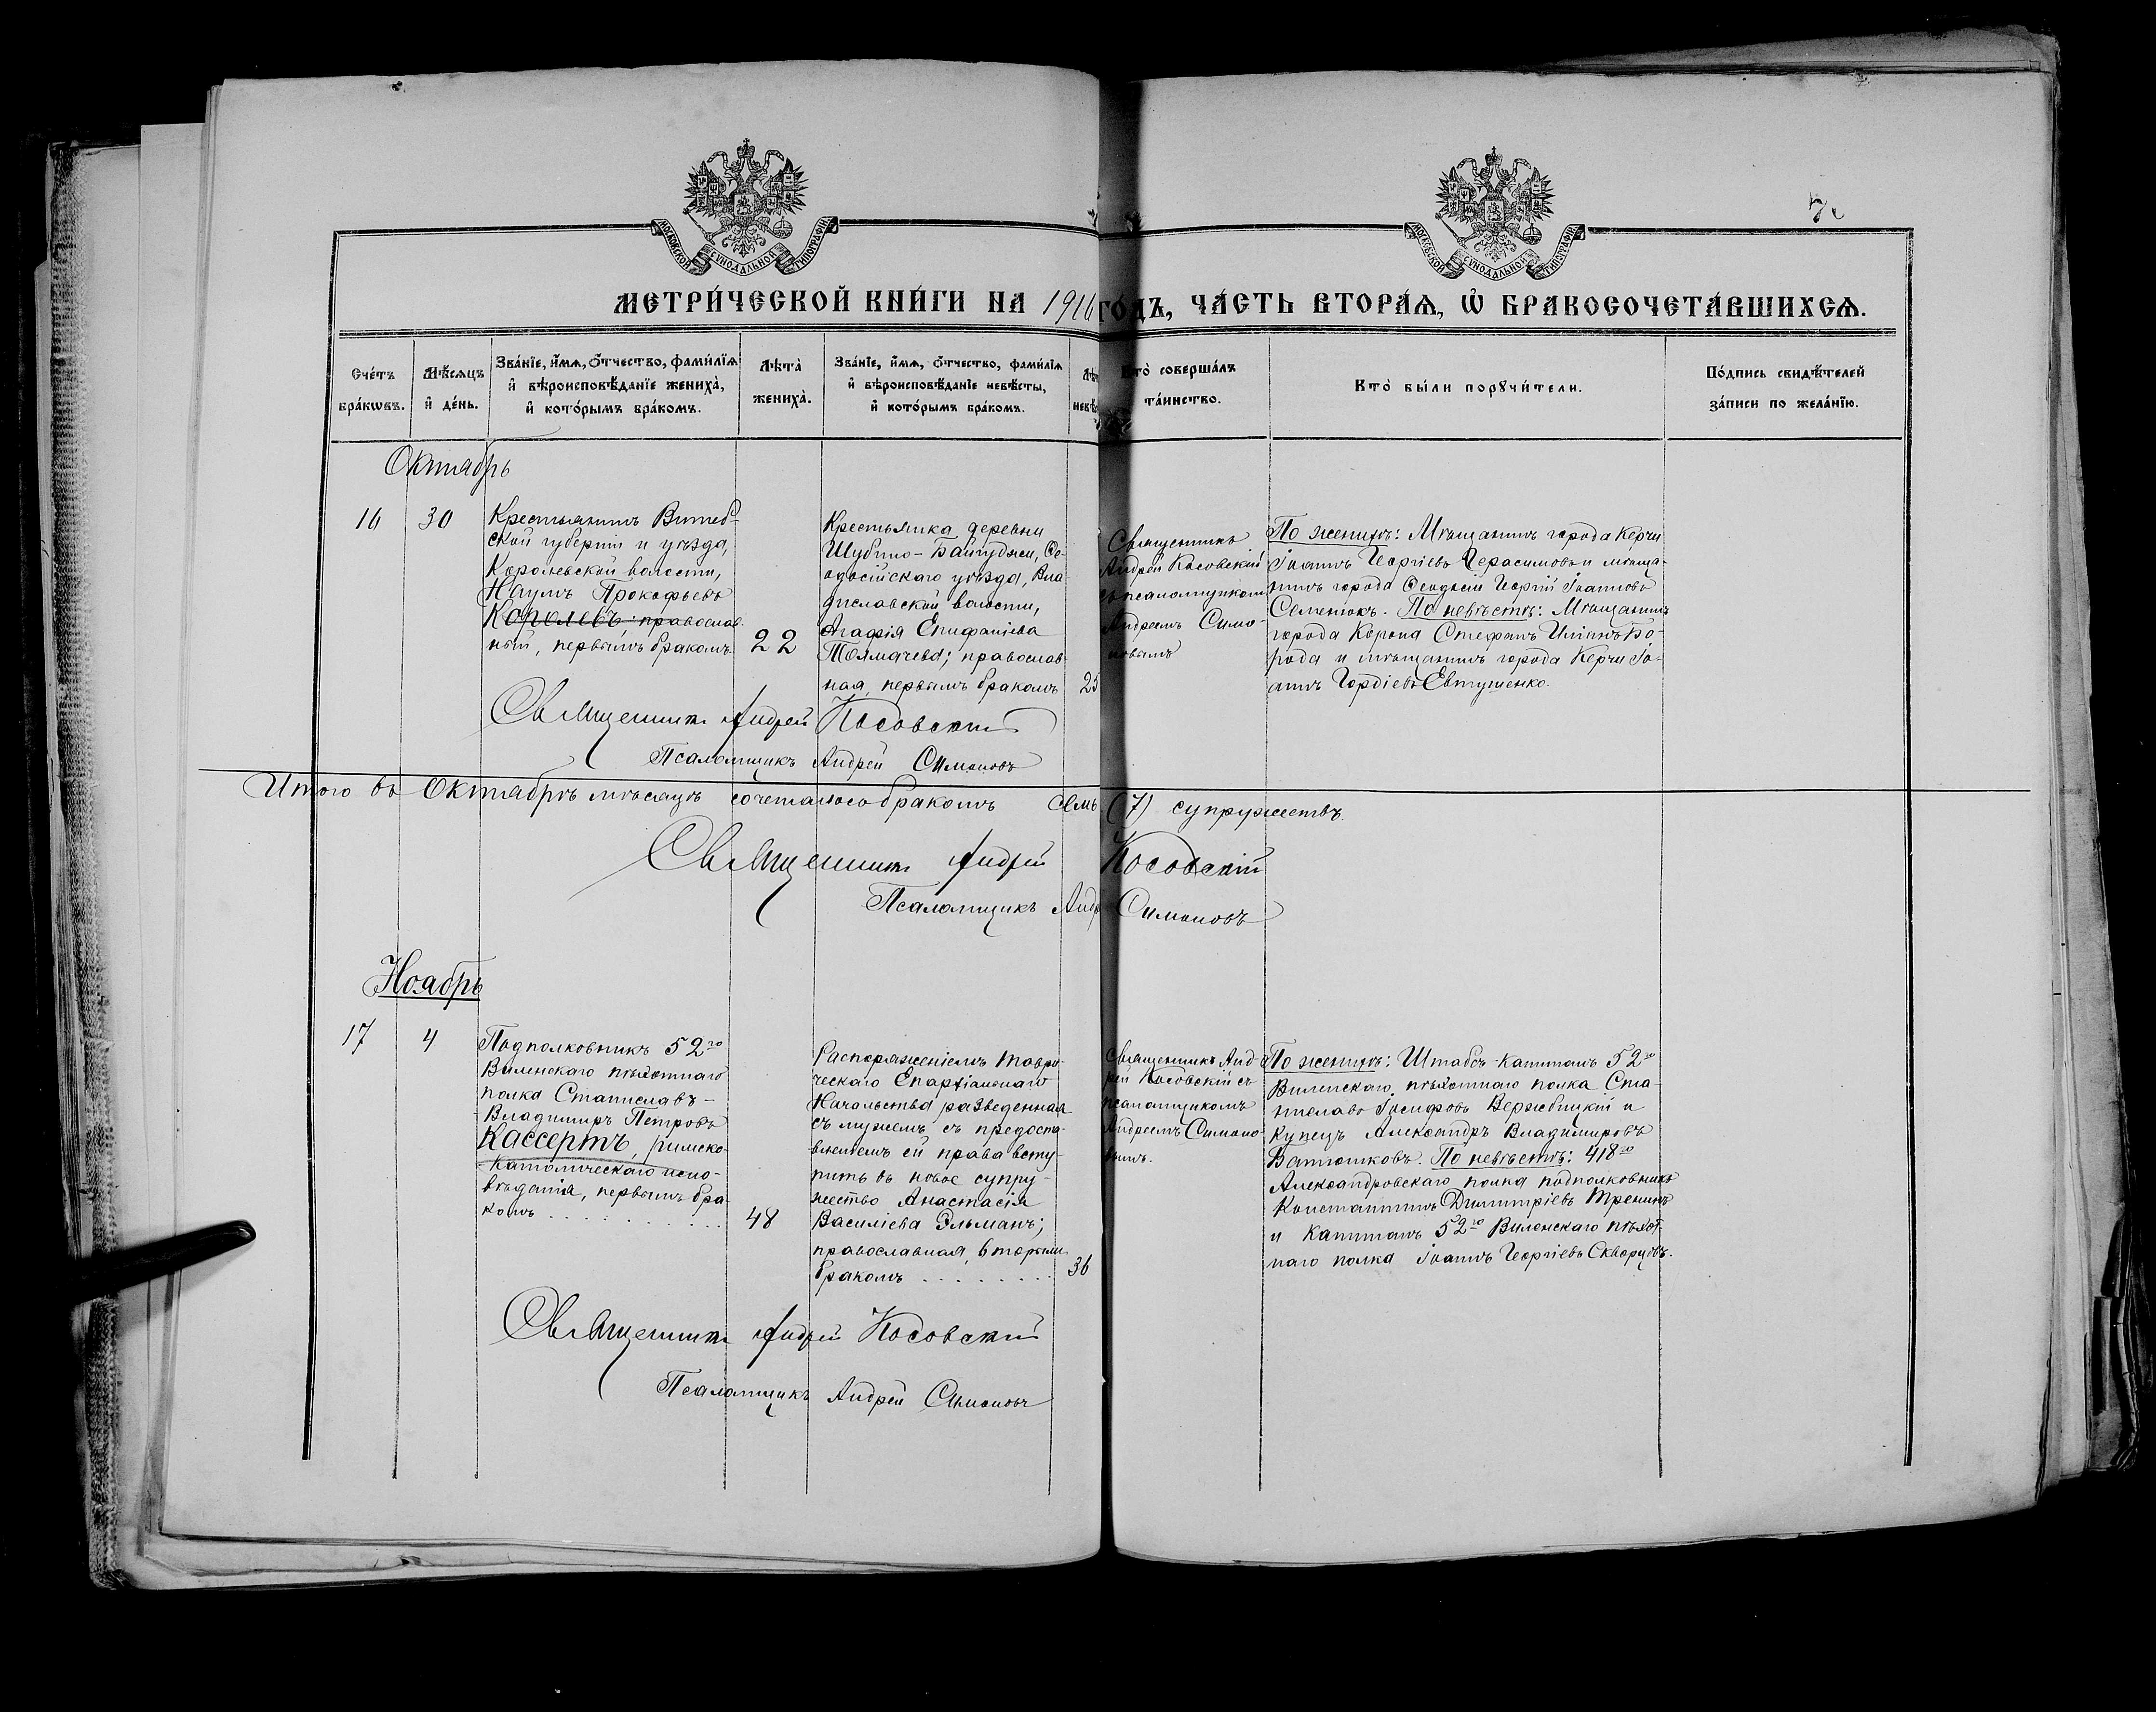 МОСКОВСКОЙ СѴНОДАЛЬНОЙ ТИПОГРАФІИ
МОСКОВСКОЙ СѴНОДАЛЬНОЙ ТИПОГРАФІИ
МЕТРИ́ЧЕСКОЙ КНИ́ГИ НА 1916 ГОДЪ, ЧА́СТЬ ВТОРА́Ѧ, Ѽ БРАКОСОЧЕТА́ВШИХСѦ.
Счéтъ бра́кѡвъ.
Мѣ́сѧцъ и҆ де́нь.
Зва́нїе, и҆́мѧ, ѻ҆́тчество, фами́лїѧ
и҆ вѣроисповѣ́данїе жениха̀,
и҆ кото́рымъ бра́комъ.
Лѣта̀
жениха̀.
Зва́нїе, и҆́мѧ, ѻ҆́тчество, фами́лїѧ
и҆ вѣроисповѣ́данїе невѣ́сты,
и҆ кото́рымъ бра́комъ.
Кто̀ соверша́лъ
та́инство.
Кто̀ бы́ли порꙋчи́тели.
По́дпись свидѣ́телей
за́писи по жела́нїю.
Октябрь
16
30
Крестьянинъ Витеб-
ской губерніи и уѣзда,
Королевской волости,
Наумъ Прокофьевъ
Королевъ; православ-
ный, первымъ бракомъ.
22
Крестьянка деревни
Шубино-Байгуджи, Ѳе-
одосійскаго уѣзда, Вла-
диславской волости,
Агафія Епифаніева
Толмачева; православ-
ная, первымъ бракомъ
25
Священникъ
Андрей Косовскій
съ псаломщикомъ
Андреемъ Симо-
новымъ
По женихѣ: Мѣщанинъ города Керчи
Іоаннъ Георгіевъ Герасимовъ и мѣща-
нинъ города Ѳеодосіи Георгій Іоанновъ
Семенюкъ. По невѣстѣ: Мѣщанинъ
города Корсуна Стефанъ Иліинъ Бо-
рода и мѣщанинъ города Керчи Іо-
аннъ Гордіевъ Евтушенко.
Священникъ Андрей Косовскій
Псаломщикъ Андрей Симоновъ
Итого въ Октябрѣ мѣсяцѣ сочеталось бракомъ семь (7) супружествъ.
Священникъ Андрей Косовскій
Псаломщикъ Андр Симоновъ
Ноябрь
17
4
Подполковникъ 52го
Виленскаго пѣхотнаго
полка Станиславъ-
Владимиръ Петровъ
Кассертъ, римско-
католическаго испо-
вѣданія, первымъ бра-
комъ
48
Распоряженіемъ Таври-
ческаго Епархіальнаго
Начальства разведенная
съ мужемъ съ предоста-
вленіемъ ей права всту-
пить въ новое супру-
жество Анастасія
Василіева Эльманъ;
православная, вторымъ
бракомъ
36
Священникъ Анд-
рей Косовскій съ
псаломщикомъ
Андреемъ Симоно-
вымъ.
По женихѣ: Штабсъ-Капитанъ 52го
Виленскаго пѣхотнаго полка Ста-
ниславъ Іосифовъ Вержбицкій и
купецъ Александръ Владимировъ
Ватюшковъ. По невѣстѣ: 418го
Александровскаго полка подполковникъ
Константинъ Димитріевъ Тренинъ
и Капитанъ 52го Виленскаго пѣхот-
наго полка Іоаннъ Георгіевъ Скворцовъ.
Священникъ Андрей Косовскій
Псаломщикъ Андрей Симоновъ